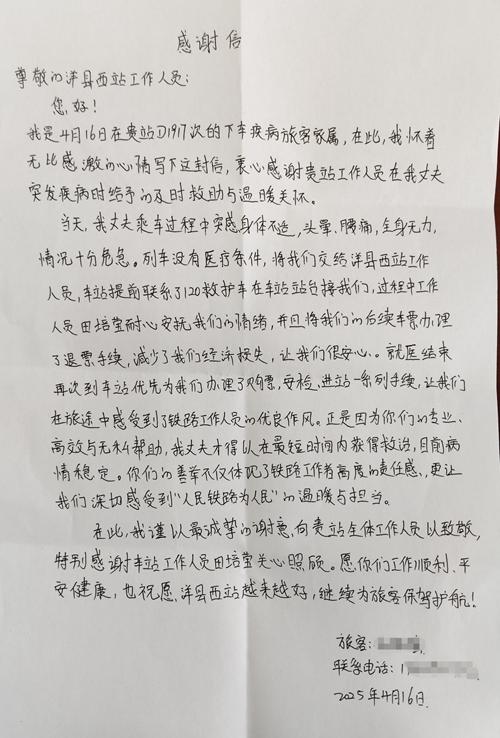 感谢信
尊敬的洋县西站工作人员：
您好！
我是4月16日在贵站D1917次的下车疾病旅客家属，在此，我怀着
无比感激的心情写下这封信，衷心感谢贵站工作人员在我丈夫
突发疾病时给予的及时救助与温暖关怀。
当天，我丈夫乘车过程中突感身体不适，头晕、腰痛，全身无力，
情况十分危急。列车没有医疗条件，将我们交给洋县西站工作
人员，车站提前联系了120救护车在车站站台接我们，过程中工作
人员田培莹耐心安抚我们的情绪，并且将我们的后续车票办理
了退票手续，减少了我们经济损失，让我们很安心。就医结束
再次到车站优先为我们办理了购票，安检、进站一系列手续，让我们
在旅途中感受到了铁路工作人员的优良作风。正是因为你们的专业、
高效与无私帮助，我丈夫才得以在最短时间内获得救治，目前病
情稳定。你们的善举不仅体现了铁路工作者高度的责任感，更让
我们深切感受到“人民铁路为人民”的温暖与担当。
在此，我谨以最诚挚的谢意，向贵站全体工作人员以致敬，
特别感谢车站工作人员田培莹关心照顾。愿你们工作顺利、平
安健康，也祝愿洋县西站越来越好，继续为旅客保驾护航！
旅客：
联系电话：1
2025年4月16日